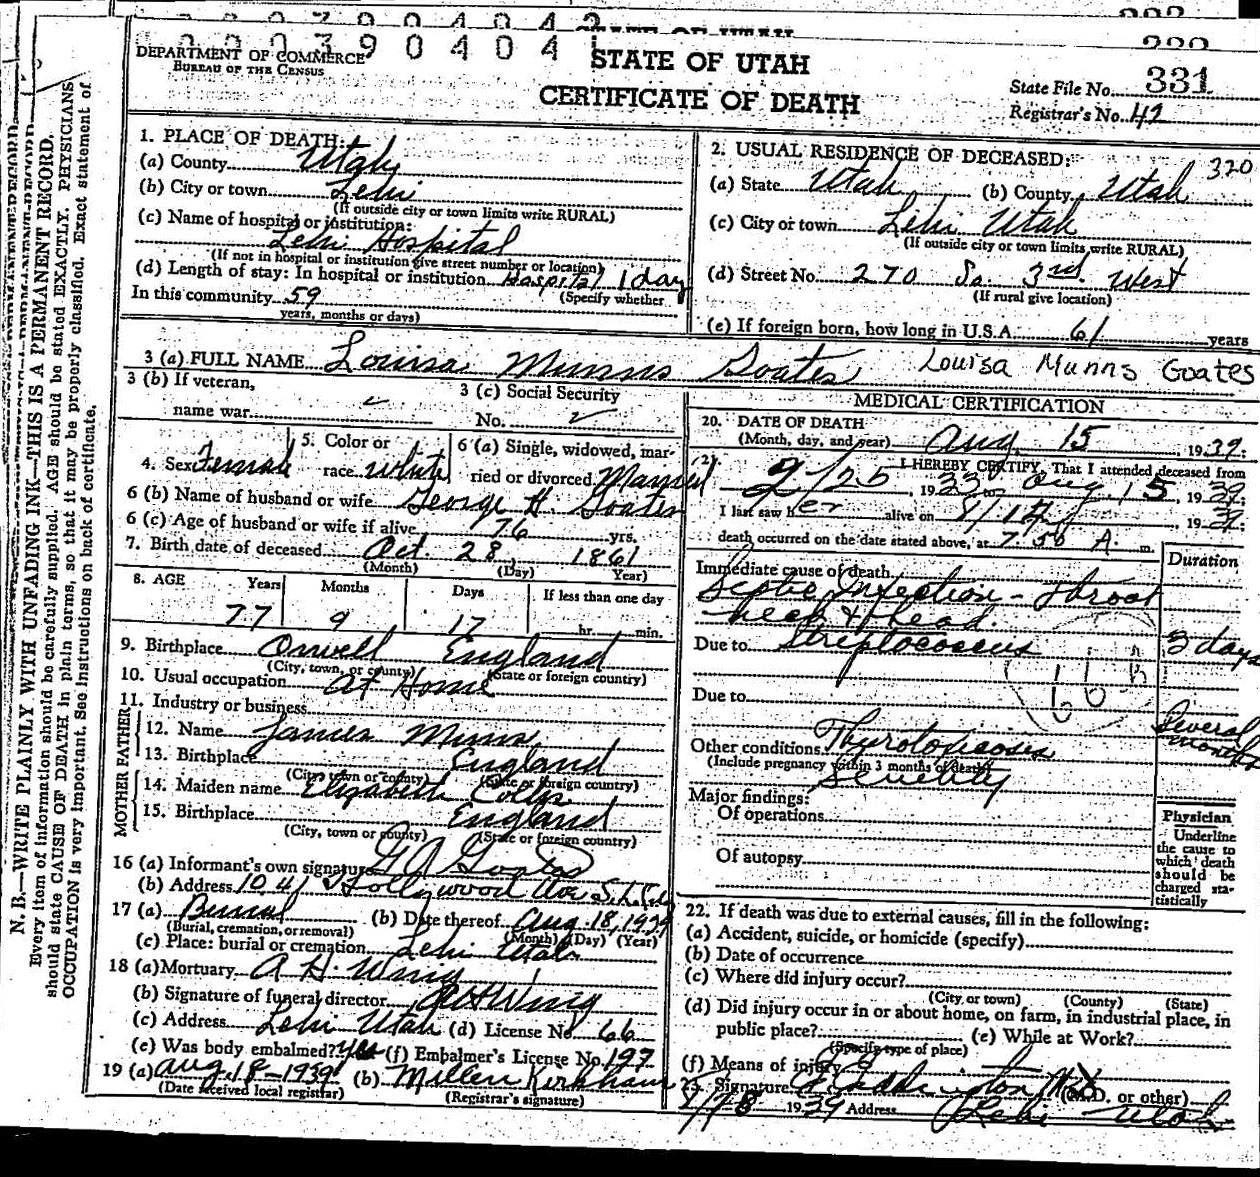 DEPARTMENT OF COMMERCE
BUREAU OF THE CENSUS
STATE OF UTAH
CERTIFICATE OF DEATH
State File No. 331
Registrar's No. 42
N. B.—WRITE PLAINLY WITH UNFADING INK—THIS IS A PERMANENT RECORD.
Every item of information should be carefully supplied. AGE should be stated EXACTLY. PHYSICIANS
should state CAUSE OF DEATH in plain terms, so that it may be properly classified. Exact statement of
OCCUPATION is very important. See instructions on back of certificate.
1. PLACE OF DEATH:
(a) County Utah
(b) City or town Lehi
(If outside city or town limits write RURAL)
(c) Name of hospital or institution:
Lehi Hospital
(If not in hospital or institution give street number or location)
(d) Length of stay: In hospital or institution Hospital 1 day
(Specify whether
In this community 59
years, months or days)
2. USUAL RESIDENCE OF DECEASED: 320
(a) State Utah (b) County Utah
(c) City or town Lehi Utah
(If outside city or town limits write RURAL)
(d) Street No. 270 So. 3rd West
(If rural give location)
(e) If foreign born, how long in U.S.A. 61 years
3 (a) FULL NAME Louisa Munns Goates Louisa Munns Goates
3 (b) If veteran,
name war
3 (c) Social Security
No.
4. Sex Female 5. Color or race White 6 (a) Single, widowed, married or divorced Married
6 (b) Name of husband or wife George H. Goates
6 (c) Age of husband or wife if alive 76 yrs.
7. Birth date of deceased Oct. 28, 1861
(Month) (Day) Year)
8. AGE Years Months Days If less than one day
77 9 17 hr. min.
9. Birthplace Orwell England
(City, town, or county) (State or foreign country)
10. Usual occupation At Home
11. Industry or business
FATHER
12. Name James Munns
13. Birthplace England
(City, town or county) (State or foreign country)
MOTHER
14. Maiden name Elizabeth
15. Birthplace England
(City, town or county) (State or foreign country)
16 (a) Informant's own signature G A Goates
(b) Address 1041 Hollywood Ave
17 (a) Burial (b) Date thereof Aug. 18, 1939
(Burial, cremation, or removal) (Month) (Day) (Year)
(c) Place: burial or cremation Lehi Utah
18 (a) Mortuary A H. Wing
(b) Signature of funeral director A H Wing
(c) Address Lehi Utah (d) License No. 66
(e) Was body embalmed? Yes (f) Embalmer's License No. 197
19 (a) Aug 18-1939 (b) Millen Kirkham
(Date received local registrar) (Registrar's signature)
MEDICAL CERTIFICATION
20. DATE OF DEATH
(Month, day, and year) Aug. 15 1939:
21 I HEREBY CERTIFY, That I attended deceased from
2/25, 1933 to Aug 15, 1939;
I last saw her alive on 1939;
death occurred on the date stated above, at 7.50 A. m.
Immediate cause of death Duration
Septic Infection - throat
neck & head.
Due to Streptococcus 3 days
Due to
Other conditions Thyrotoxicosis Several months
(Include pregnancy within 3 months of death)
Severity
Major findings:
Of operations
Of autopsy
Physician
Underline
the cause to
which death
should be
charged sta-
tistically
22. If death was due to external causes, fill in the following:
(a) Accident, suicide, or homicide (specify)
(b) Date of occurrence
(c) Where did injury occur?
(City or town) (County) (State)
(d) Did injury occur in or about home, on farm, in industrial place, in
public place? (e) While at Work?
(Specify type of place)
(f) Means of injury
23. Signature Eddington MD (M.D. or other)
1939 Address Lehi Utah